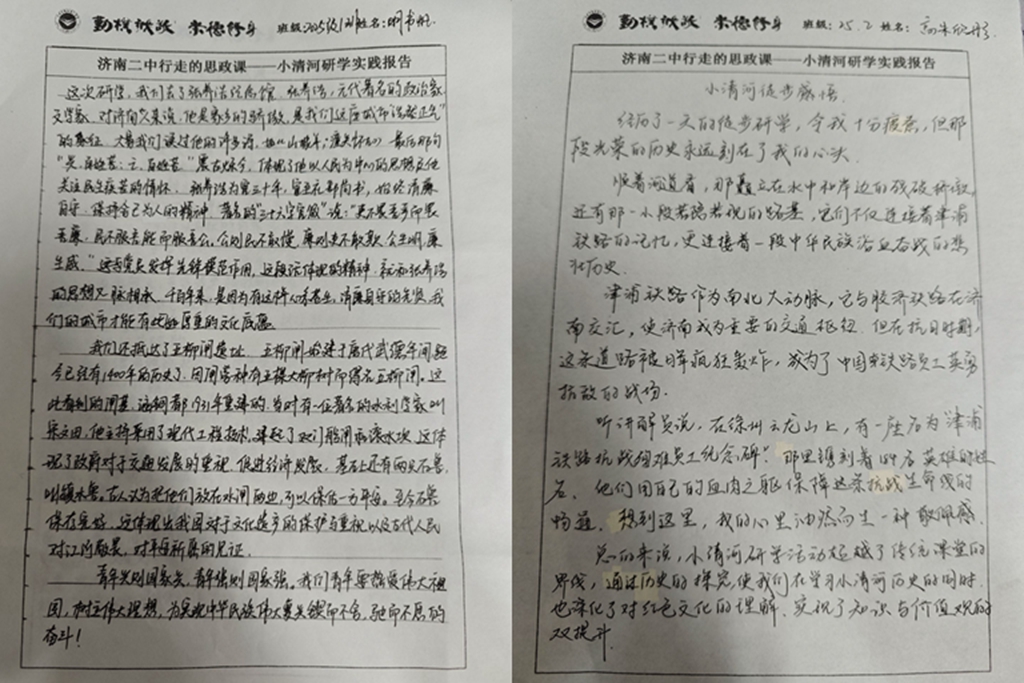 勤朴献诚 崇德修身 班级:2025级1班 姓名:
济南二中行走的思政课——小清河研学实践报告
这次研学,我们去了张养浩纪念馆。张养浩,元代著名的政治家
文学家,对济南人来说,他是家乡的骄傲,是我们这座城市浩然正气
的象征。大家我们读过他的许多诗,如《山坡羊·潼关怀古》最后那句
“兴,百姓苦;亡,百姓苦”震古烁今,体现了他以人民为中心的思想及他
关注民生疾苦的情怀。张养浩为官三十年,官至礼部尚书,始终清廉
自守,保持自己为人的精神。著名的“三十六字官箴”说:“吏不畏吾严而畏
吾廉,民不服吾能而服吾公。公则民不敢慢,廉则吏不敢欺。公生明,廉
生威。”这与党员发挥先锋模范作用,这段话体现的精神,就和张养浩
的思想一脉相承。千百年来,是因为有这样心系苍生,清廉自守的先贤,我
们的城市才能有如此厚重的文化底蕴。
我们还抵达了五柳闸遗址。五柳闸始建于唐代武德年间,距
今已经有1400年的历史了,因闸旁种有五棵大柳树而得名五柳闸。这
此看到的闸基,这铜都1931年重建的,当时有一位著名的水利学家叫
宋文田,他主持采用了现代工程技术,建起了双门船闸和滚水坝,这体
现了政府对于交通发展的重视,促进经济发展,基石上还有两只石兽,
叫镇水兽。古人认为把他们放在水闸两边,可以保佑一方平安。至今石兽
保存完好,这体现出我国对于文化遗产的保护与重视以及古代人民
对江河敬畏,对平安祈愿的见证。
青年兴则国家兴,青年强则国家强。我们青年要热爱伟大祖
国,树立伟大理想,为实现中华民族伟大复兴锲而不舍,驰而不息的
奋斗!
勤朴献诚 崇德修身 班级:25.2 姓名:
济南二中行走的思政课——小清河研学实践报告
小清河徒步感悟.
经历了一天的徒步研学,令我十分疲惫,但那
段光荣的历史永远刻在了我的心头.
顺着河道看,那矗立在水中和岸边的残破桥墩,
还有那一小段若隐若现的路基,它们不仅连接着津浦
铁路的记忆,更连接着一段中华民族浴血奋战的悲
壮历史.
津浦铁路作为南北大动脉,它与胶济铁路在济
南交汇,使济南成为重要的交通枢纽.但在抗日时期,
这条道路被日军疯狂轰炸,成为了中国铁路员工英勇
抗敌的战场.
听讲解员说,在徐州云龙山上,有一座名为“津浦
铁路抗战殉难员工纪念碑”.那里镌刻着189名英雄的姓
名.他们用自己的血肉之躯保障这条抗战生命线的
畅通.想到这里,我的心里油然而生一种敬佩感.
总的来说,小清河研学活动超越了传统课堂的
界线,通过历史的探究,使我们在学习小清河历史的同时,
也深化了对红色文化的理解.实现了知识与价值观的
双提升.